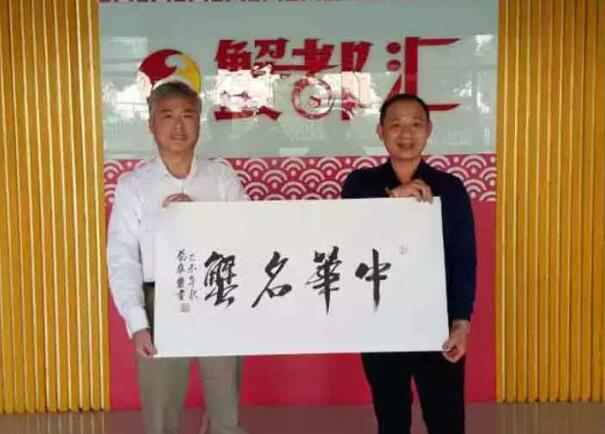 蟹都汇
中華名蟹
乙未年秋